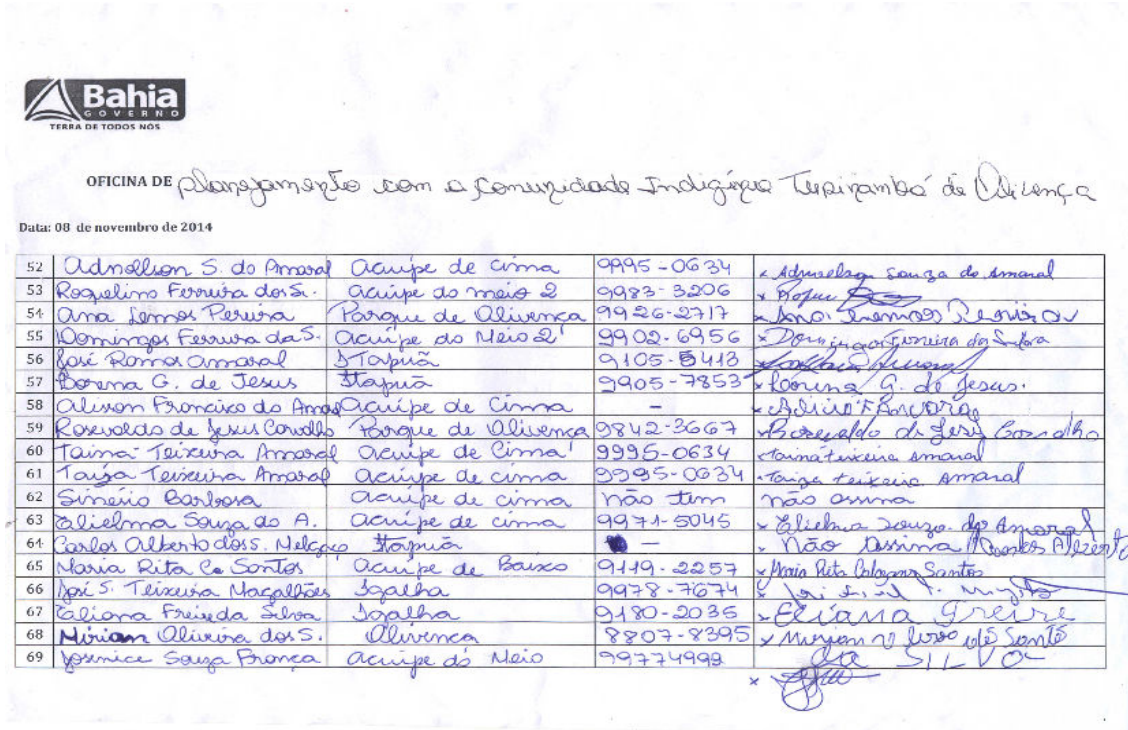 Bahia
GOVERNO
TERRA DE TODOS NÓS
OFICINA DE planejamento com a comunidade Indígena Tupinambá de Olivença
Data: 08 de novembro de 2014
52 Adnoelson S. do Amaral Acuípe de cima 9995-0634 x Adnoelson Souza do Amaral
53 Roquelino Ferreira dos S. acuípe do meio 2 9983-3206 x
54 Ana Lemos Pereira Parque de Olivença 9926-2717 x Ana Lemos Pereira
55 Domingos Ferreira da S. Acuípe do Meio 2 9902-6956 x Domingos Ferreira da Silva
56 José Ramos Amaral Itapuã 9105-5413
57 Lorena G. de Jesus Itapuã 9905-7853 x Lorena G. de Jesus.
58 Alisson Francisco do Amaral Acuípe de Cima - x
59 Rosevaldo de Jesus Carvalho Parque de Olivença 9842-3667 x Rosevaldo de Jesus Carvalho
60 Tainá Teixeira Amaral Acuipe de Cima 9995-0634 x Tainá teixeira amaral
61 Taiza Teixeira Amaral Acuipe de cima 9995-0634 x Taiza teixeira Amaral
62 Barbosa Acuipe de cima não tem não assina
63 Elielma Souza do A. acuípe de cima 9971-5045 x Elielma Souza do Amaral
64 Carlos Alberto dos S. Itapuã - x Não Assina
65 Maria Rita C. Santos acuipe de Baixo 9119-2257 x Maria Rita Santos
66 José S. Teixeira Magalhães Igalha 9978-7674 x
67 Eliana Freire da Silva Igalha 9180-2035 x Eliana Freire
68 Mirian Oliveira dos S. Olivença 8807-8395 x
da SILVA
69 Josenice Souza França acuipe do Meio 99774992
x